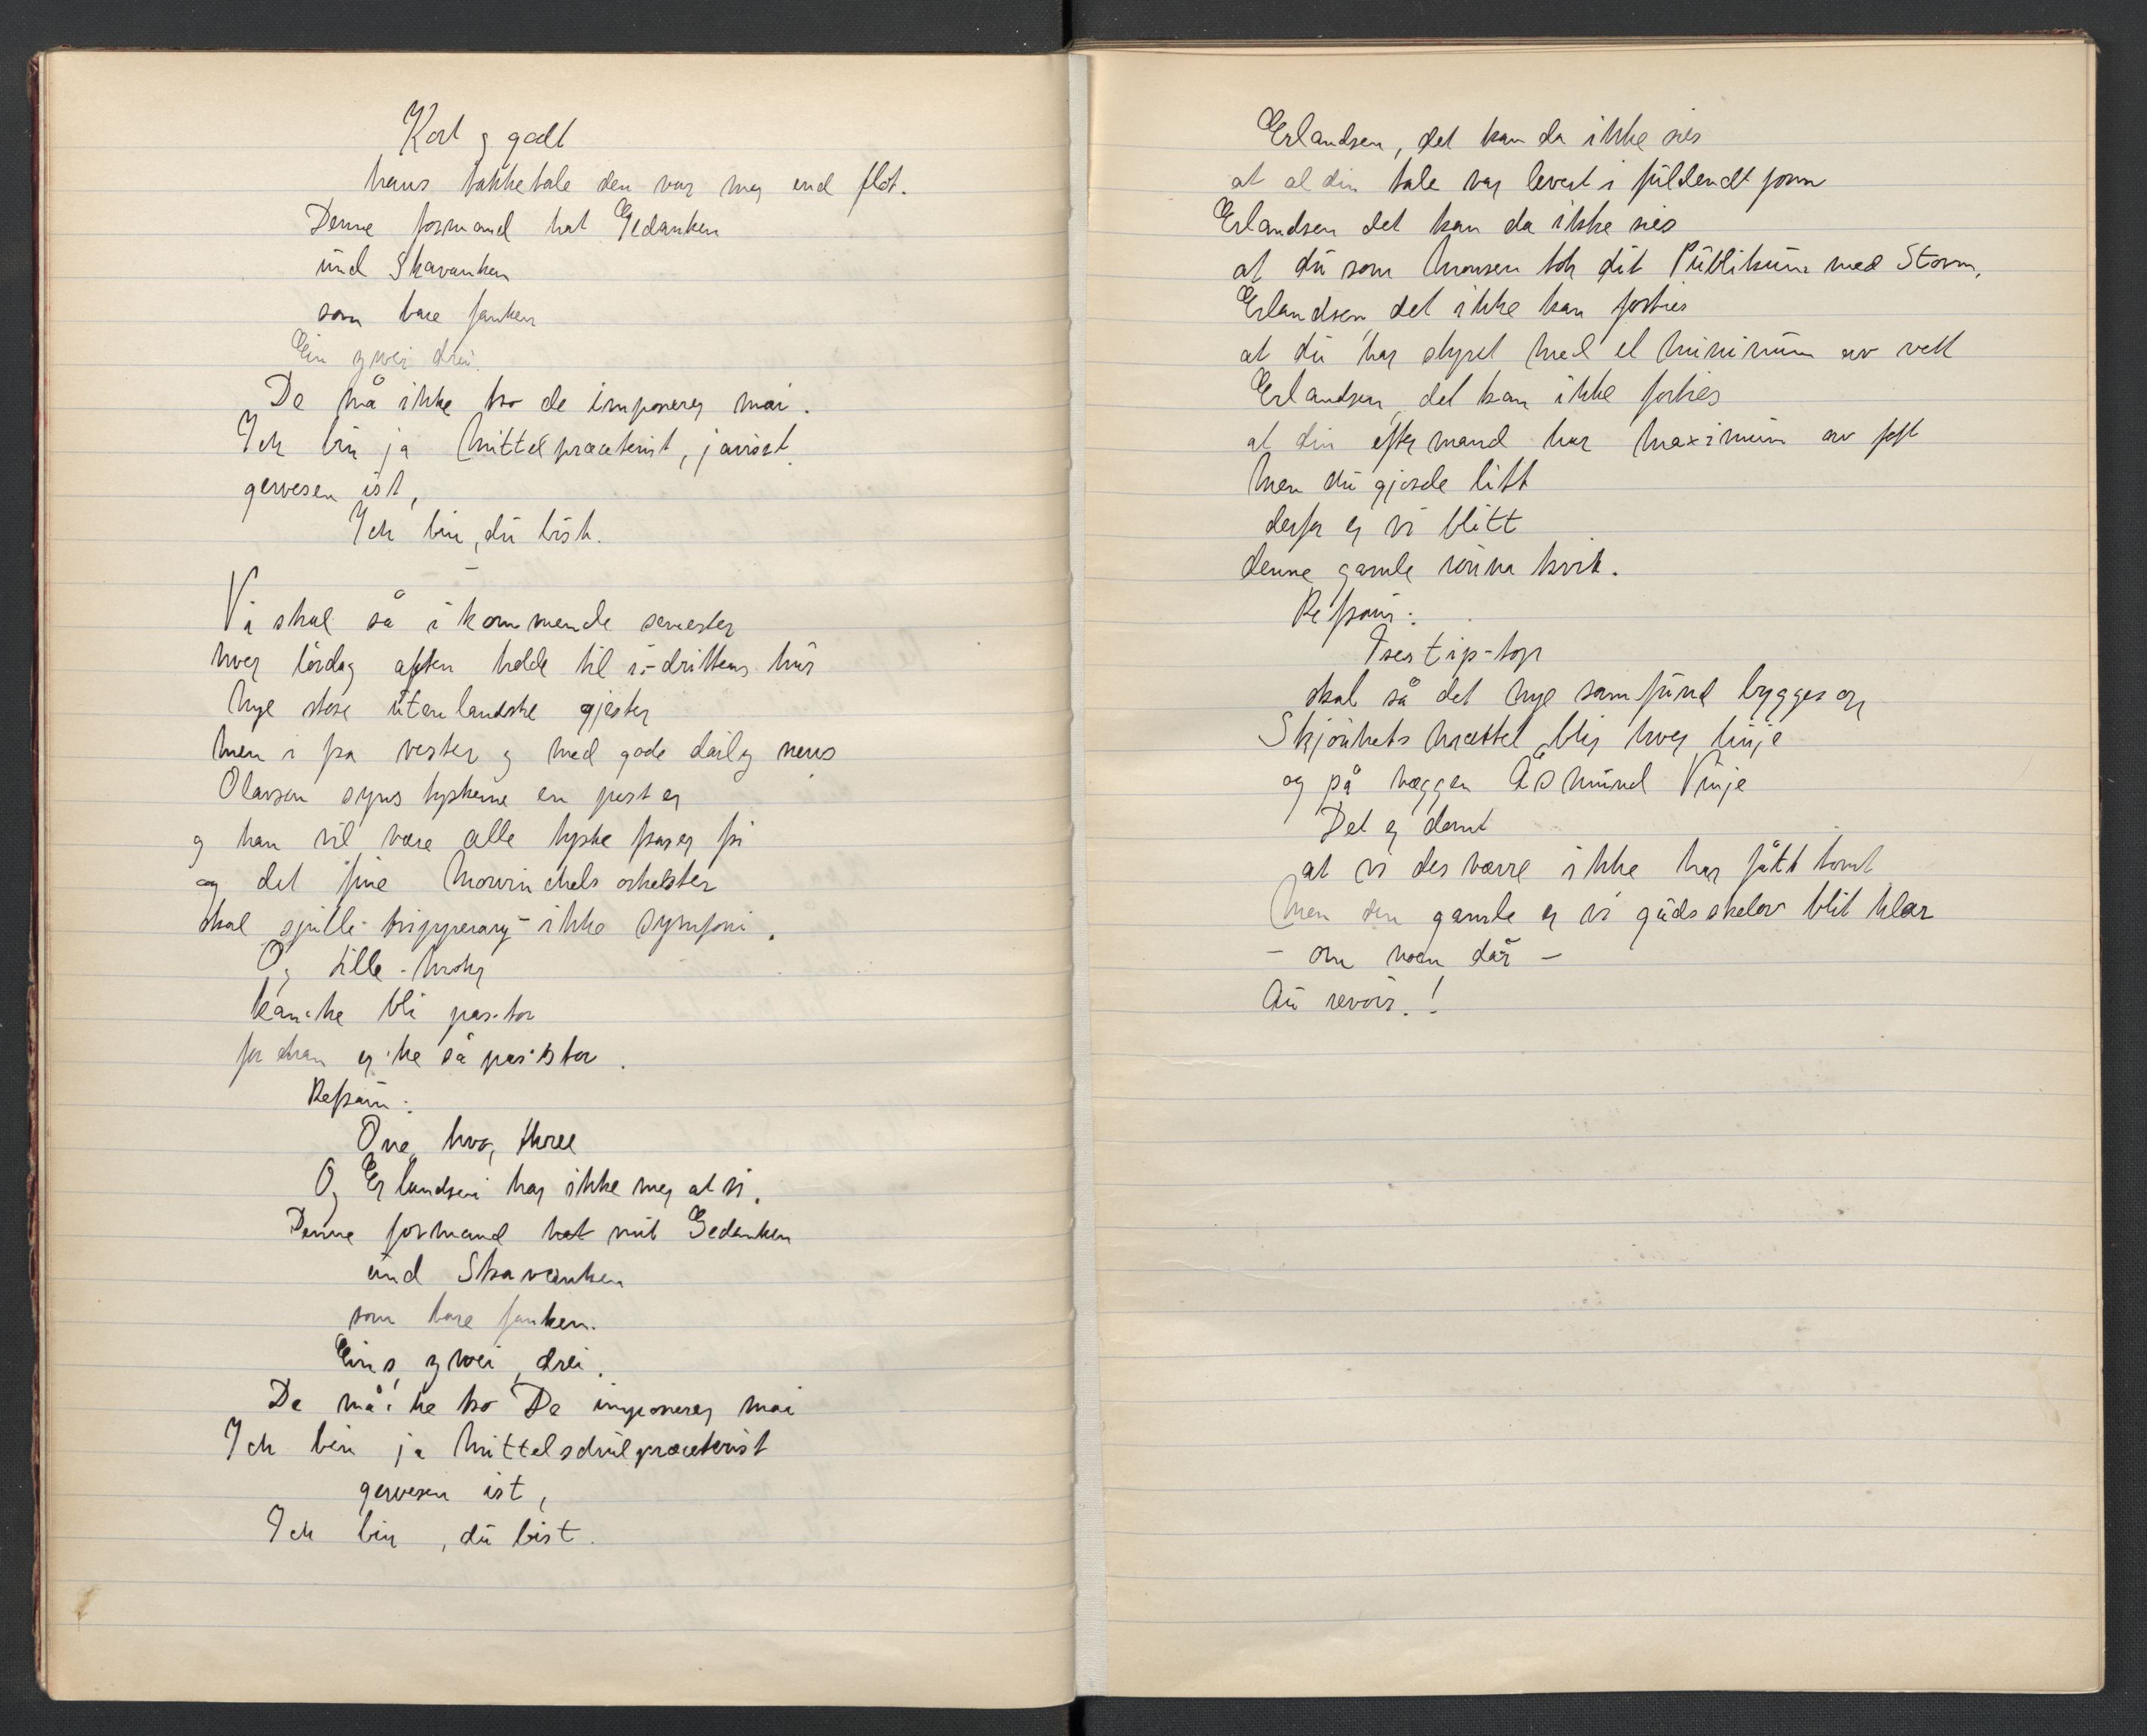 Kort og godt
hans takketale den var mer end flot.
Denne formand hat Gedanken
und Skavanken
som bare fanken
Ein zwei drei.
De må ikke tro de imponerer mai.
Ich bin ja Mittelpræeterist, javisst
gewesen ist,
Ich bin, du bist.
Vi skal så i kommende semester
hver lørdag aften holde til i-drittens hus
Mye store utenlandske gjester
men i fra vester og med gode daily news
Olavson syns tyskerne en pest er
og han vil være alle tyske faser fri
og det fine Mowinckels orkester
skal spille tripperary - ikke symfoni.
Og Lille-
kan-ke bli pas-tor
for han er'ke så pas stor.
Refrain:
One, two, three
Og Erlandsen har ikke mer at si.
Denne formand hat mit Gedanken
und Skavanken
som bare fanken.
Eins, zwei, drei.
De må'ke tro De imponerer mai
Ich bin ja Mittelschulpræeterist
gewesen ist,
Ich bin, du bist.
Erlandsen, det kan da ikke sies
at al din tale var levert i fuldendt form
Erlandsen det kan da ikke sies
at du som Monsen tok dit Publikum med Storm,
Erlandsen, det ikke kan forties
at du har styret med et minimum av vett
Erlandsen, det kan ikke forties
at din eftermand har maximum av fett
Men du gjorde litt
derfor er vi blitt
denne gamle kvit.
Refrain:
Tip-top
skal så det nye samfund bygges op
Skjønhets blir hver linje
og på væggen Åsmund Vinje
Det er domt
at vi desværre ikke har fått tomt
Men den gamle er vi gudskelov blit klar
- om noen dar -
Au revoir.!